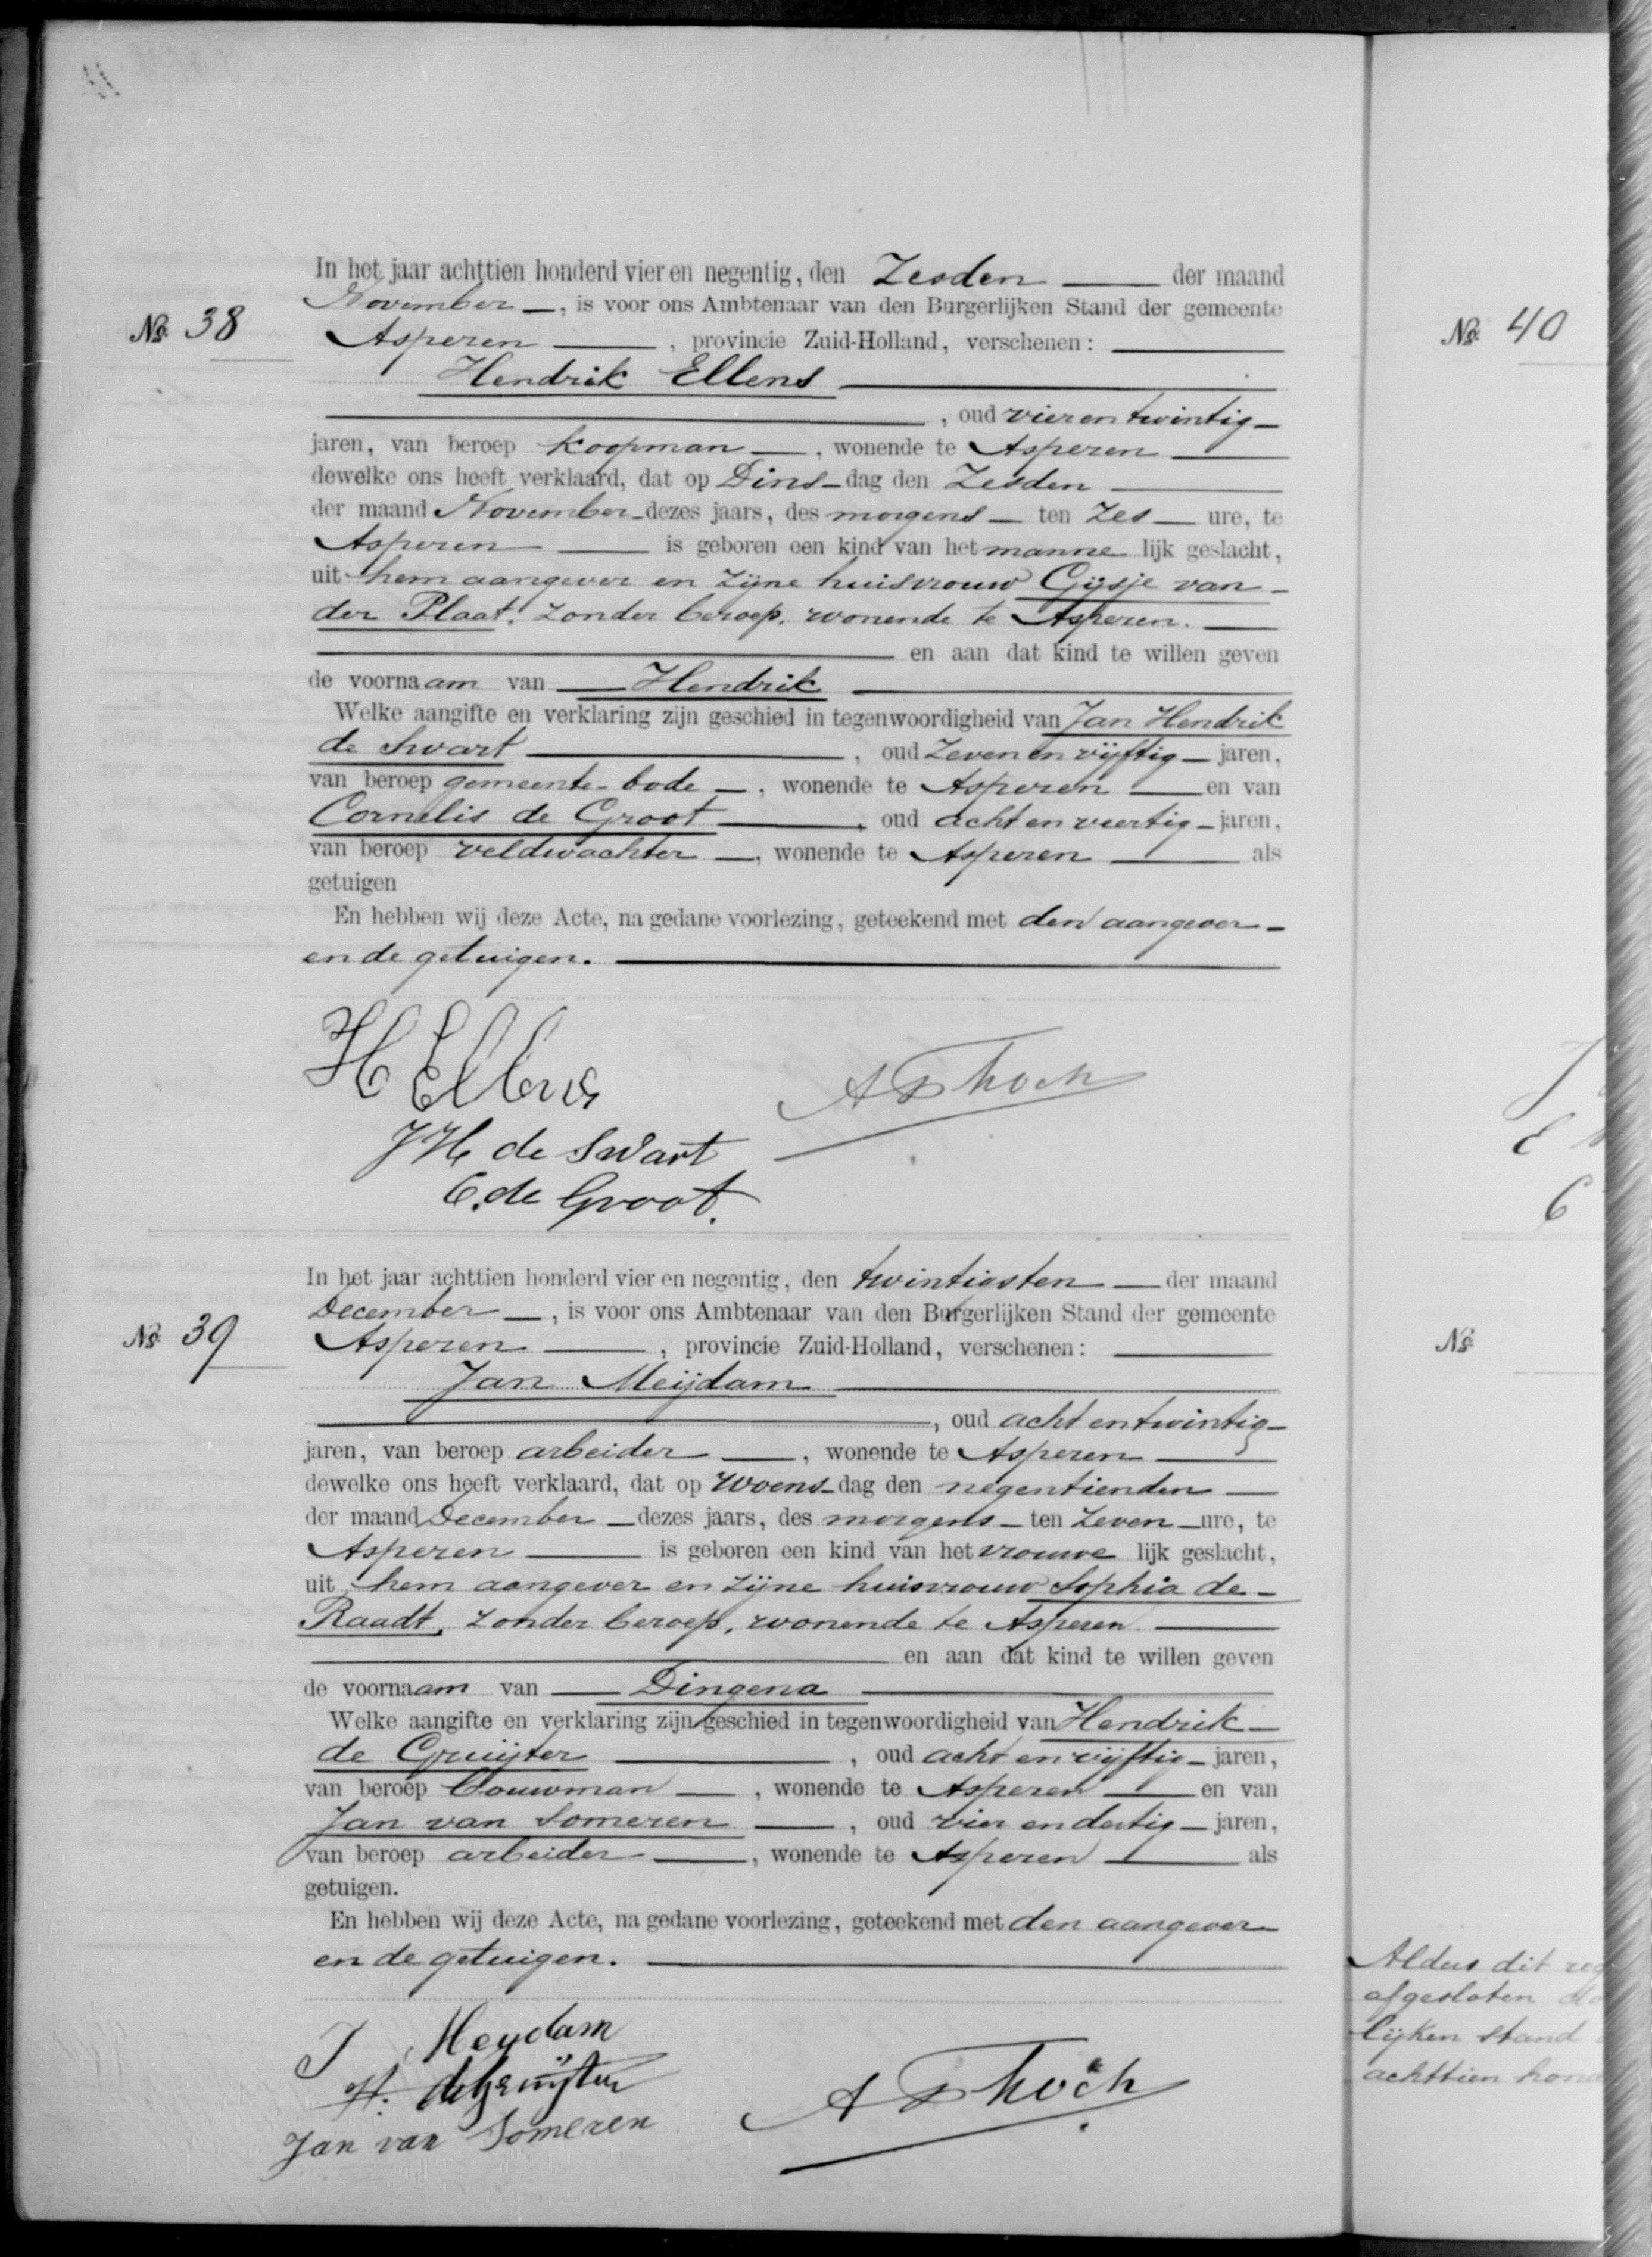 In het jaar achttien honderd vier en negentig, den Zesden der maand
November, is voor ons Ambtenaar van den Burgerlijken Stand der gemeente
No. 38
Asperen, provincie Zuid-Holland, verschenen:
Hendrik Ellens
, oud vier en twintig
jaren, van beroep koopman, wonende te Asperen
dewelke ons heeft verklaard, dat op Dins-dag den Zesden
der maand November dezes jaars, des morgens ten Zes ure, te
Asperen is geboren een kind van het manne lijk geslacht,
uit hem aangever en zijne huisvrouw Gijsje van
der Plaat, zonder beroep, wonende te Asperen.
en aan dat kind te willen geven
de voornaam van Hendrik
Welke aangifte en verklaring zijn geschied in tegenwoordigheid van Jan Hendrik
de Swart, oud Zeven en vijftig jaren,
van beroep gemeente-bode, wonende te Asperen en van
Cornelis de Groot, oud acht en veertig jaren,
van beroep veldwachter, wonende te Asperen als
getuigen
En hebben wij deze Acte, na gedane voorlezing, geteekend met den aangever
en de getuigen.
H Ellens
JH de Swart
C. de Groot.
In het jaar achttien honderd vier en negentig, den twintigsten der maand
December, is voor ons Ambtenaar van den Burgerlijken Stand der gemeente
No. 39
Asperen, provincie Zuid-Holland, verschenen:
Jan Meijdam
, oud acht en twintig
jaren, van beroep arbeider, wonende te Asperen
dewelke ons heeft verklaard, dat op Woens-dag den negentienden
der maand December dezes jaars, des morgens ten Zeven ure, te
Asperen is geboren een kind van het vrouwe lijk geslacht,
uit hem aangever en zijne huisvrouw Sophia de
Raadt, zonder beroep, wonende te Asperen
en aan dat kind te willen geven
de voornaam van Dingena
Welke aangifte en verklaring zijn geschied in tegenwoordigheid van Hendrik
de Gruijter, oud acht en vijftig jaren,
van beroep bouwman, wonende te Asperen en van
Jan van Someren, oud vier en dertig jaren,
van beroep arbeider, wonende te Asperen als
getuigen.
En hebben wij deze Acte, na gedane voorlezing, geteekend met den aangever
en de getuigen.
J Meydam
H. de Gruijter
Jan van Someren
No. 40
No.
Aldus dit
afgesloten
lijken stand
achttien